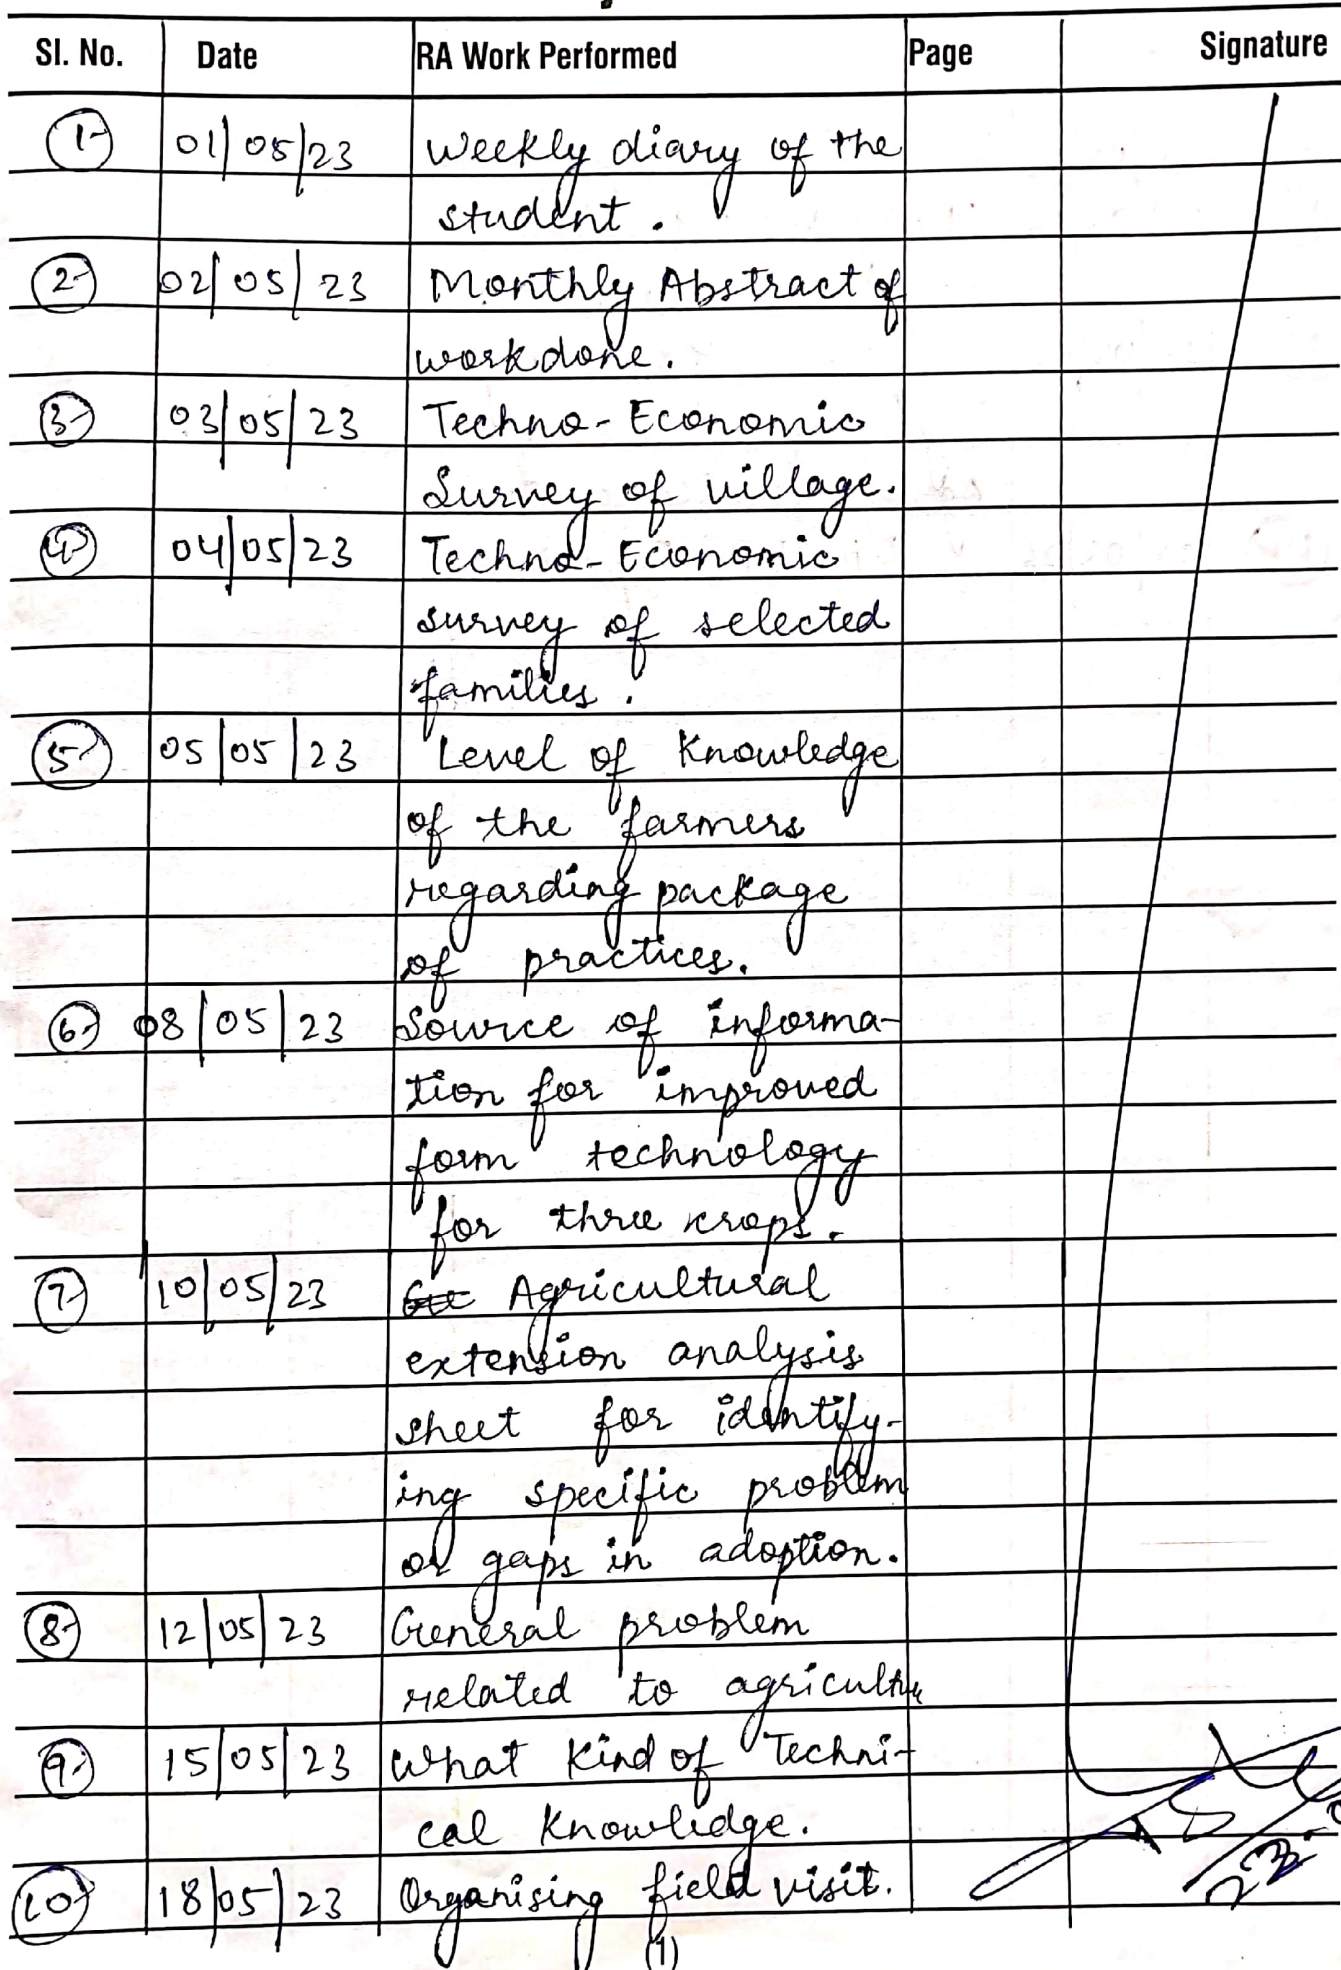 Sl. No. Date RA Work Performed Page Signature
1- 01/05/23 Weekly diary of the
student.
2- 02/05/23 Monthly Abstract of
workdone.
3- 03/05/23 Techno-Economic
Survey of village.
4- 04/05/23 Techno-Economic
survey of selected
families.
5- 05/05/23 Level of Knowledge
of the farmers
regarding package
of practices.
6- 08/05/23 Source of informa-
tion for improved
form technology
for three crops.
7- 10/05/23 Agricultural
extension analysis
sheet for identify-
ing specific problem
or gaps in adoption.
8- 12/05/23 General problem
related to agricultu
9- 15/05/23 What Kind of Techni-
cal Knowledge.
10- 18/05/23 Organising field visit.
(1)